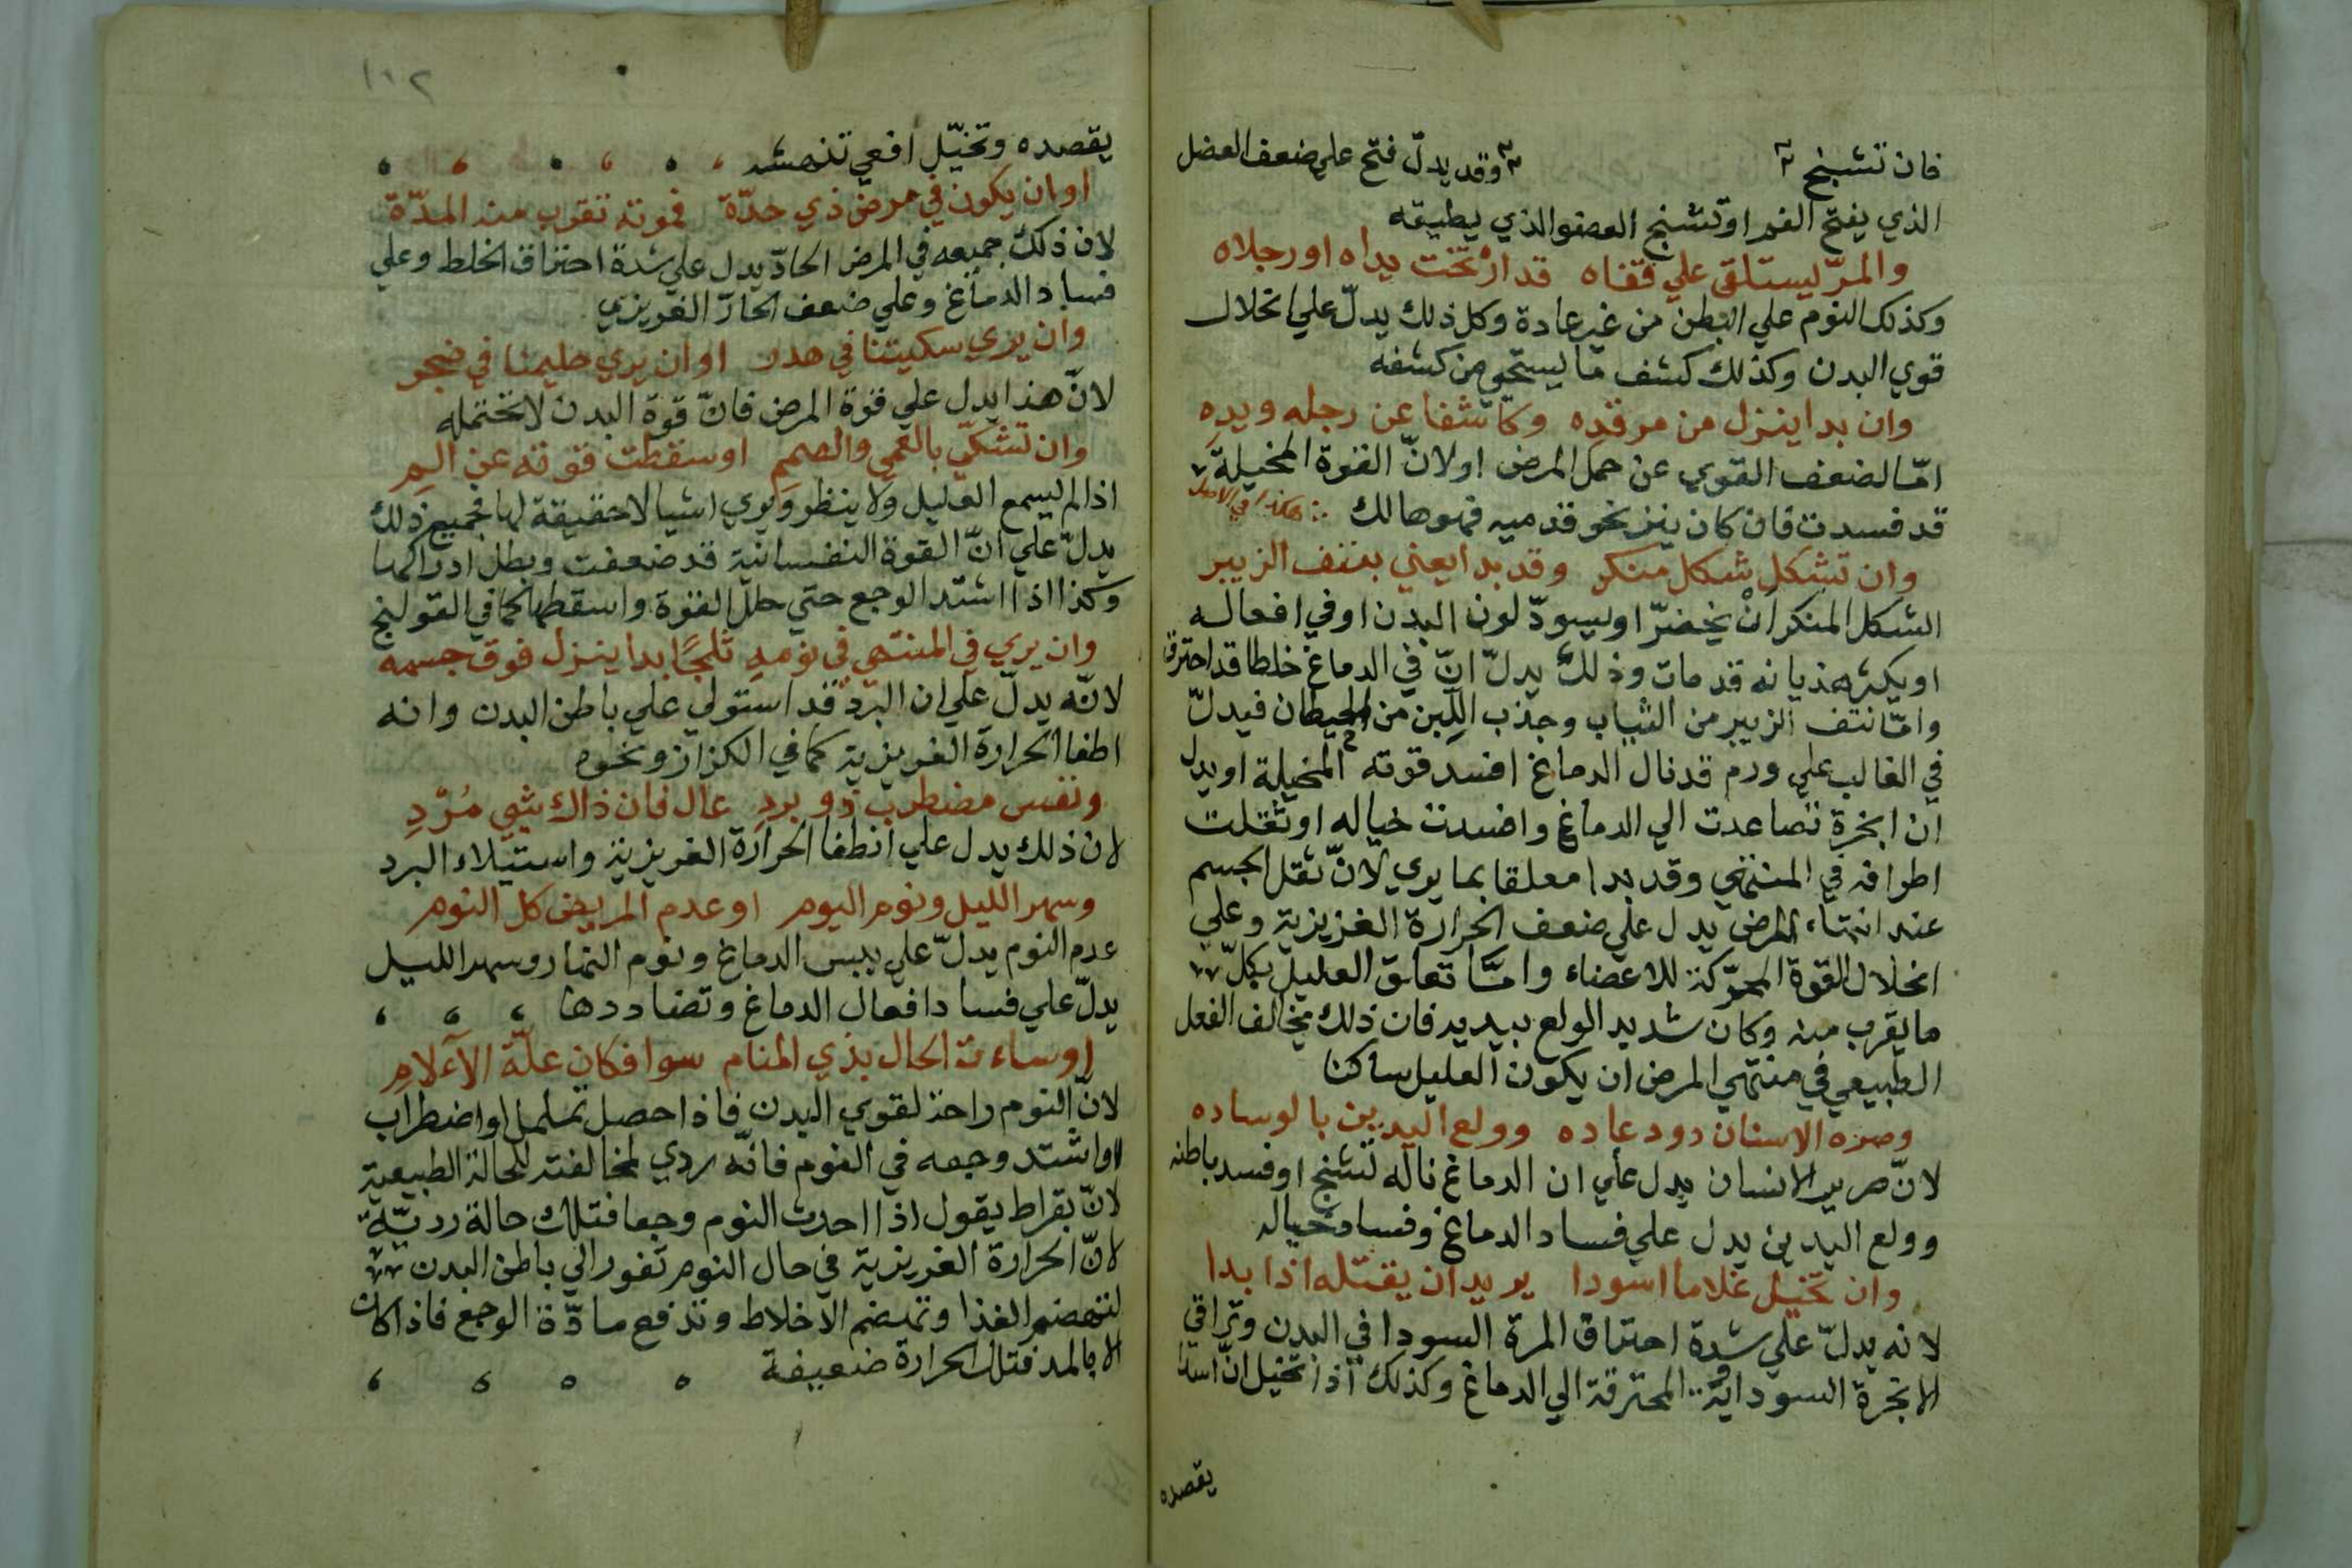 فان تشبنج وقد يدلّ فتح علي ضعف العضل
الذي يفتح الفم او تشنج العضو الذي يطبقه
والمرّ يستلقي علي قفاه قد ارْتخت يداه او رجلاه
وكذلك النوم علي البطن من غير عادة وكل ذلك يدلّ علي انحلال
قوي البدن وكذلك كشف ما يستحي من كشفه
وان بدا ينزل من مرقده وكاشفا عن رجله ويده
امّا لضعف القوي عن حمل المرض او لانّ القوة المخيلة
قد فسدت فان كان ينزنحو قدميه فهو هالك هكذا في الاصل
وان تشكل شكل منكر وقد بدا يعني بنتف الزيبر
الشكل المنكر انْ يخضرّ او يسودّ لون البدن او في افعاله
او يكثر هذيانه قد مات وذلك يدلّ انّ في الدماغ خلطا قد احترق
وامّا نتف الزيبر من الثياب وجذب اللّبن من الحيطان فيدلّ
في الغالب علي ورم قد نال الدماغ افسد قوته المخيلة او يدل
ان ابخرة تصاعدت الي الدماغ وافسدت خياله او ثقلت
اطرافه في المنتهي وقد بدا معلقا بما يري لانّ ثقل الجسم
عند انتهاء المرض يدل علي ضعف الحرارة الغزيزية وعلي
انحلال القوة المحرّكة للاعضاء وامّا تعلق العليل بكلّ
ما يقرب منه وكان شديد الولع بيديه فان ذلك يخالف الفعل
الطبيعي في منتهي المرض ان يكون العليل ساكنا
وصره الاسنان دود عاده وولع اليدين بالوساده
لانّ صرير الانسان يدل علي ان الدماغ ناله تشنج او فسد باطنه
وولع اليدين يدل علي فساد الدماغ وفساد خياله
وان تخيل غلاما اسودا يريد ان يقتله اذا بدا
لانه يدلّ علي شدة احتراق المرة السودا في البدن وتراقي
الابخرة السوداية المحترقة الي الدماغ وكذلك اذا تخيل انّ اسدا
يقصده
١١٢
يقصده وتخيّل افعي تنهشه
او ان يكون في مرض ذي حدّة فموته تقرب منه المدّة
لان ذلك جميعه في المرض الحادّ يدل علي شدة احتراق الخلط وعلي
فساد الدماغ وعلي ضعف الحارّ الغريزي
وان يري سكيتنا في هدر او ان يري حليمنا في ضجر
لانّ هذا يدل علي قوة المرض فانّ قوة البدن لا تحتمله
وان تشكّي بالعمي والصمم او سقطت قوته عن الم
اذا لم يسمع العليل ولا ينظر ويري اشيا لا حقيقة لها فجميع ذلك
يدلّ علي انّ القوة النفسانية قد ضعفت وبطل ادراكها
وكذا اذا اشتد الوجع حتي حلل القوة واسقطها كما في القولنج
وان يري في المنتهي في نومه ثلجًا بدا ينزل فوق جسمه
لانّه يدلّ علي ان البرد قد استولي علي باطن البدن وانه
اطفا الحرارة الغريزية كما في الكزاز ونحوه
ونفس مضطرب ذو برد عال فان ذاك شي مُرَدِ
لان ذلك يدل علي انطفا الحرارة الغريزية واستيلاء البرد
وسهر الليل ونوم اليوم او عدم المريض كل النوم
عدم النوم يدلّ علي يبس الدماغ ونوم النهار وسهر الليل
يدلّ علي فساد افعال الدماغ وتضاددها
او ساءت الحال بذي المنام سوا فكان علّة الآلام
لانّ النوم راحة لقوي البدن فاذا حصل تململ او اضطراب
او اشتد وجعه في النوم فانّه ردي لمخالفته للحالة الطبيعية
لانّ بقراط يقول اذا احدث النوم وجعا فتلك حالة رديّة
لانّ الحرارة الغريزية في حال النوم تغور الي باطن البدن
لتهضم الغذا وتهضم الاخلاط وتدفع مادّة الوجع فاذا كان
الا بالمد فتلك الحرارة ضعيفة